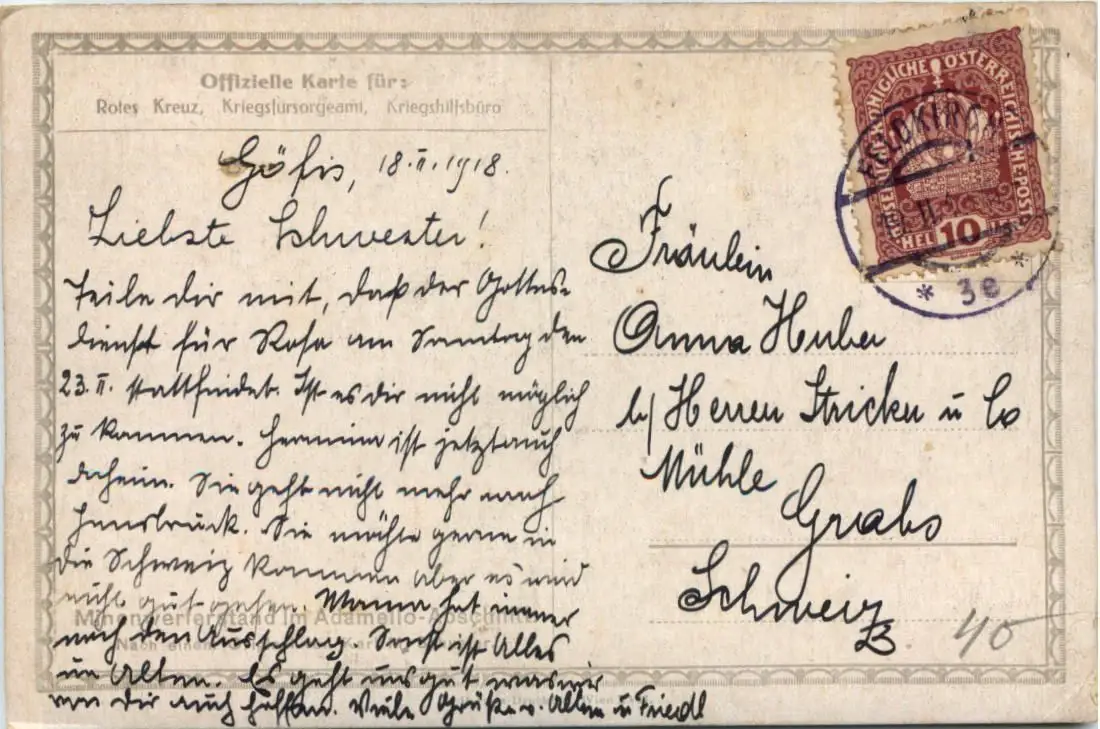 Offizielle Karte für:
Rotes Kreuz, Kriegsfürsorgeamt, Kriegshilfsbüro
Göfis, 18.II.1918.
Liebste Schwester!
Teile dir mit, daß der Gottes-
dienst für Rosa am Samstag den
23.II. stattfindet. Ist es dir nicht möglich
zu kommen. Hermina ist jetzt auch
daheim. Sie geht nicht mehr nach
Innsbruck. Sie möchte gerne in
die Schweiz kommen aber es wird
nicht gut gehen. Mama hat immer
noch den Ausschlag. Sonst ist Alles
im Alten. Es geht uns gut was wir
von Dir auch hoffen. Viele Grüße v. Allen u Friedl
Minenwerferstand im Adamello-Abschnitt
Nach einem
KAISERLICHE KÖNIGLICHE ÖSTERREICHISCHE POST
HEL 10
FELDKIRCH
19 II
* 3e *
Fräulein
Anna Huber
b/ Herren Stricker u Co
Mühle
Grabs
Schweiz
40